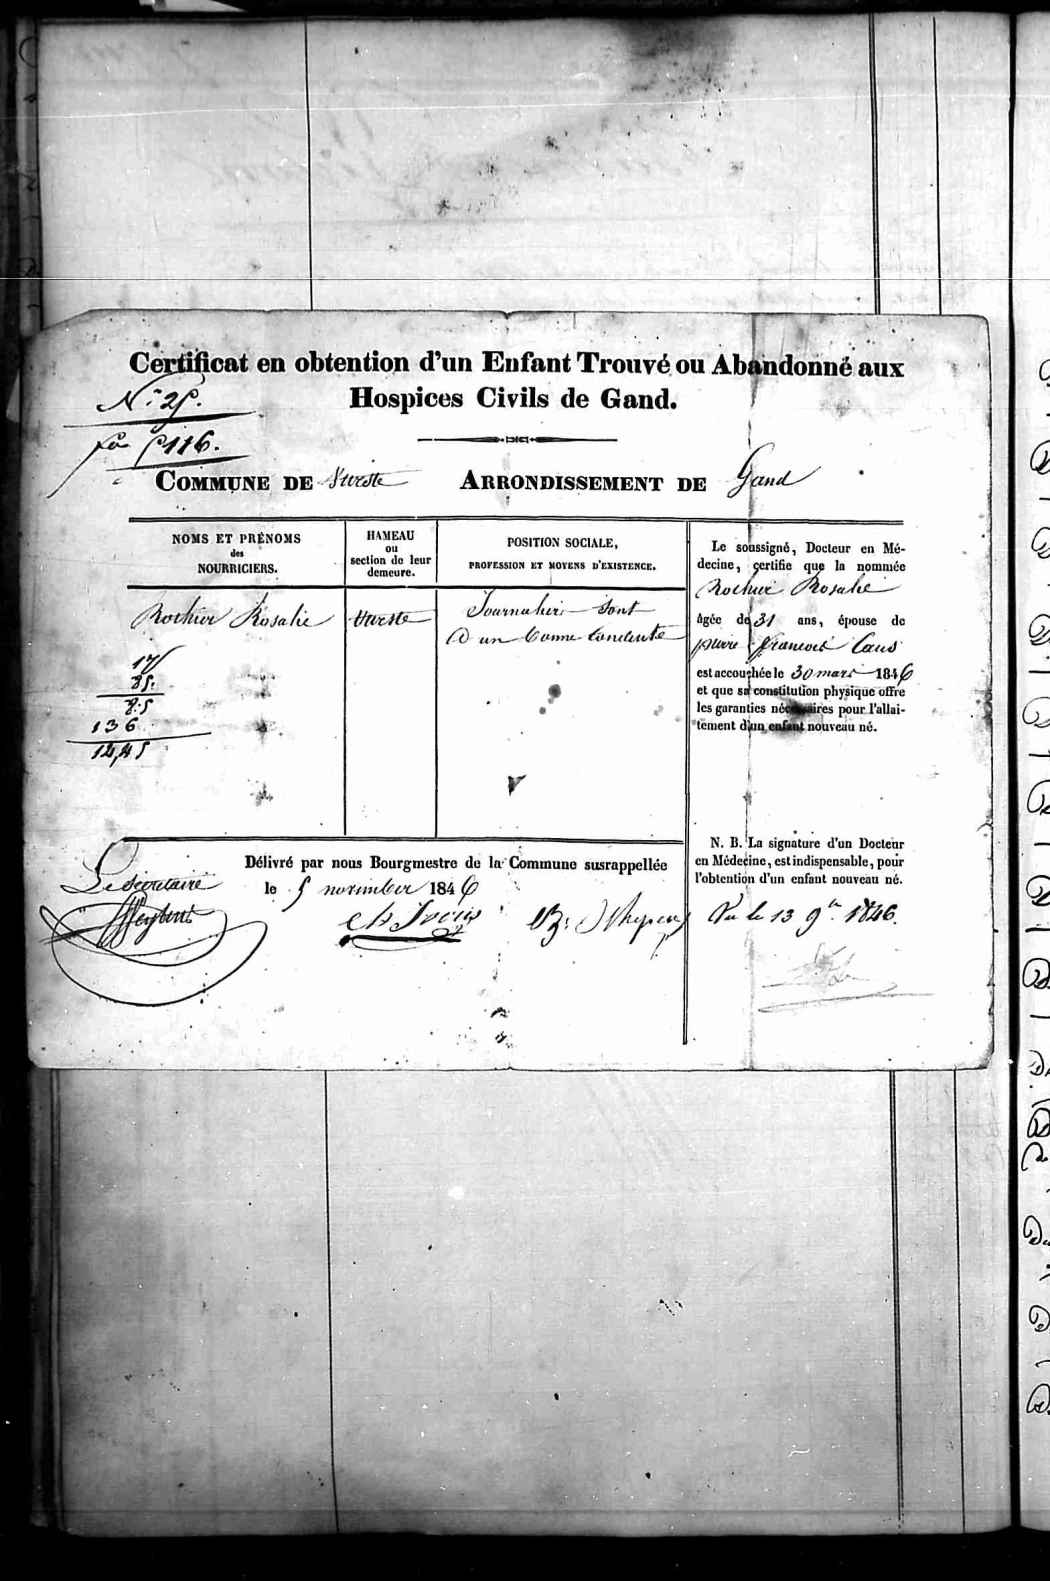 Certificat en obtention d'un Enfant Trouvé ou Abandonné aux
Hospices Civils de Gand.
N° 25.
fo 5116.
COMMUNE DE Vurste ARRONDISSEMENT DE Gand
NOMS ET PRÉNOMS
des
NOURRICIERS.
HAMEAU
ou
section de leur
demeure.
POSITION SOCIALE,
PROFESSION ET MOYENS D'EXISTENCE.
Rochier Rosalie
Vurste
Journalier sont
à un bonne Conduite
17
85
136
Le soussigné, Docteur en Mé-
decine, certifie que la nommée
Rochier Rosalie
âgée de 31 ans, épouse de
pierre francois Caus
est accouchée le 30 mars 1846
et que sa constitution physique offre
les garanties nécessaires pour l'allai-
tement d'un enfant nouveau né.
N. B. La signature d'un Docteur
en Médecine, est indispensable, pour
l'obtention d'un enfant nouveau né.
Délivré par nous Bourgmestre de la Commune susrappellée
le 5 november 1846
Le secretaire
Vu le 13 9re 1846.